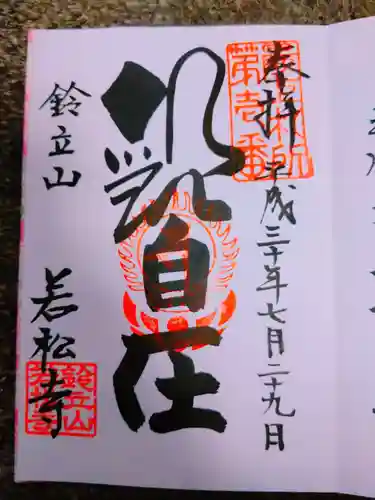 奉拝 平成三十年七月二十九日
第壱番
自在
鈴立山
若松寺
鈴立山
若松寺